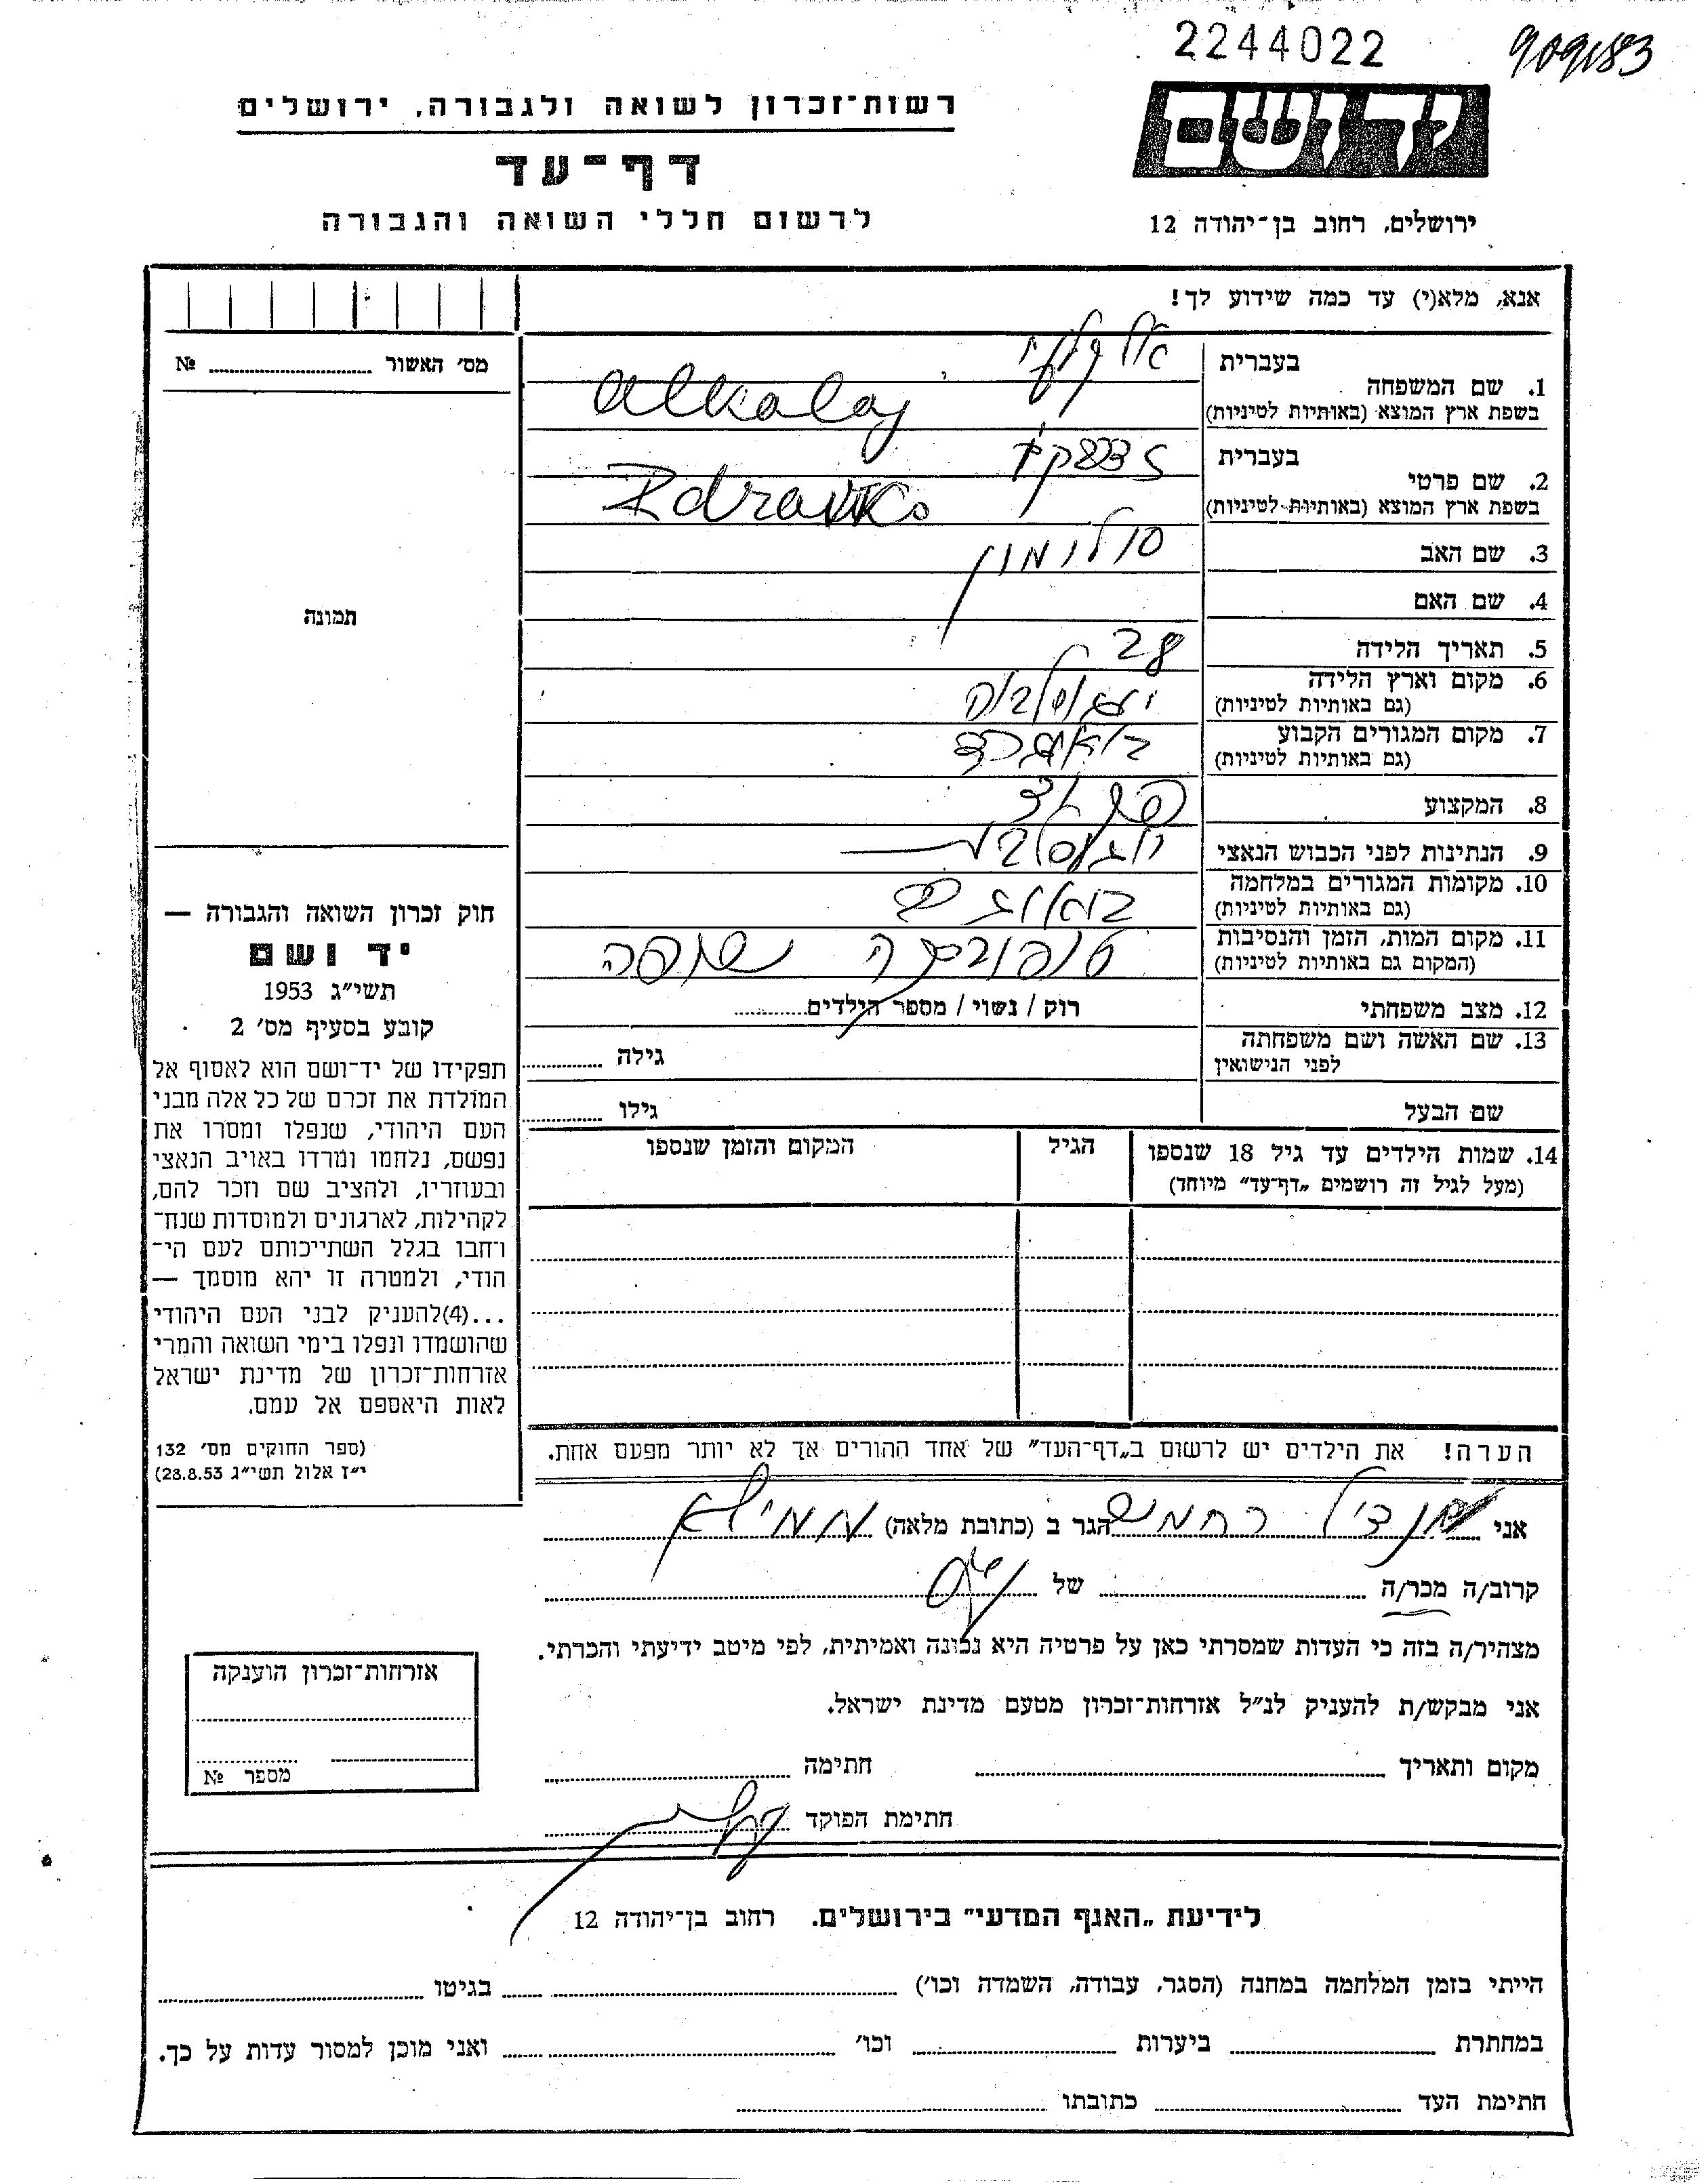 2244022
909183
יד ושם
רשות־זכרון לשואה ולגבורה, ירושלים
דף־עד
לרשום חללי השואה והגבורה
ירושלים, רחוב בן־יהודה 12
אנא, מלא(י) עד כמה שידוע לך!
מס׳ האשור № 
בעברית אלקלעי
1. שם המשפחה
בשפת ארץ המוצא (באותיות לטיניות) Alkalaj
בעברית
2. שם פרטי
בשפת ארץ המוצא (באותיות לטיניות) Zdravko
3. שם האב סולומון
4. שם האם
5. תאריך הלידה 28
6. מקום וארץ הלידה
(גם באותיות לטיניות)
7. מקום המגורים הקבוע
(גם באותיות לטיניות)
8. המקצוע
9. הנתינות לפני הכבוש הנאצי
10. מקומות המגורים במלחמה
(גם באותיות לטיניות)
11. מקום המות, הזמן והנסיבות
(המקום גם באותיות לטיניות)
12. מצב משפחתי רוק / נשוי / מספר הילדים
13. שם האשה ושם משפחתה
לפני הנישואין גילה
שם הבעל גילו
תמונה
חוק זכרון השואה והגבורה —
יד ושם
תשי״ג 1953
קובע בסעיף מס׳ 2
תפקידו של יד־ושם הוא לאסוף אל
המולדת את זכרם של כל אלה מבני
העם היהודי, שנפלו ומסרו את
נפשם, נלחמו ומרדו באויב הנאצי
ובעוזריו, ולהציב שם וזכר להם,
לקהילות, לארגונים ולמוסדות שנח־
רחבו בגלל השתייכותם לעם הי־
הודי, ולמטרה זו יהא מוסמך —
...(4)להעניק לבני העם היהודי
שהושמדו ונפלו בימי השואה והמרי
אזרחות־זכרון של מדינת ישראל
לאות היאספם אל עמם.
(ספר החוקים מס׳ 132
י״ז אלול תשי״ג 28.8.53)
14. שמות הילדים עד גיל 18 שנספו הגיל המקום והזמן שנספו
(מעל לגיל זה רושמים „דף־עד״ מיוחד)
הערה! את הילדים יש לרשום ב„דף־העד״ של אחד ההורים אך לא יותר מפעם אחת.
אני הגר ב (כתובת מלאה)
קרוב/ה מכר/ה של
מצהיר/ה בזה כי העדות שמסרתי כאן על פרטיה היא נכונה ואמיתית, לפי מיטב ידיעתי והכרתי.
אני מבקש/ת להעניק לנ״ל אזרחות־זכרון מטעם מדינת ישראל.
מקום ותאריך חתימה
חתימת הפוקד
אזרחות־זכרון הוענקה
מספר №
לידיעת „האגף המדעי״ בירושלים. רחוב בן־יהודה 12
הייתי בזמן המלחמה במחנה (הסגר, עבודה, השמדה וכו׳) בגיטו
במחתרת ביערות וכו׳ ואני מוכן למסור עדות על כך.
חתימת העד כתובתו